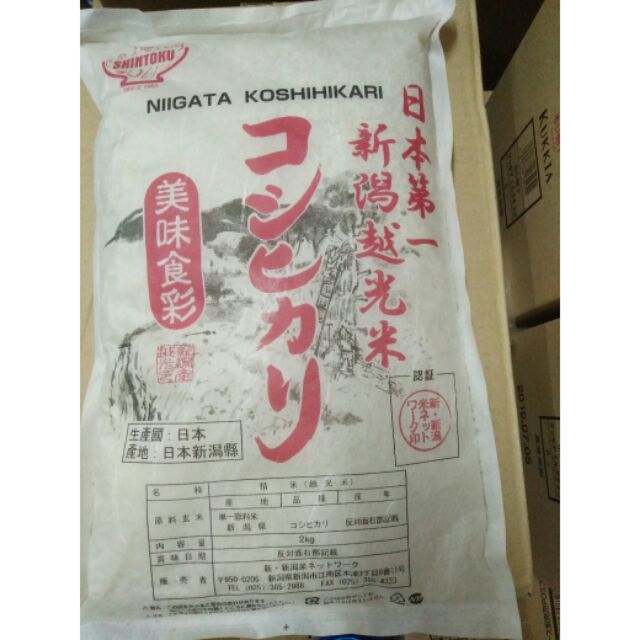 SHINTOKU
NIIGATA KOSHIHIKARI
日本第一
新潟越光米
コシヒカリ
美味食彩
認証
新・新潟
米ネット
ワーク印
生產國：日本
產地：日本新潟縣
名 称 精 米（越 光 米）
産 地 品 種 産 年
原料玄米 単一原料米
新潟県 コシヒカリ 反対面右部記載
内容量 2kg
賞味日期 反対面右部記載
販売者 新・新潟米ネットワーク
〒950-0206 新潟県新潟市江南区
TEL (025) FAX (025)
KUKKIA
2019.07.05